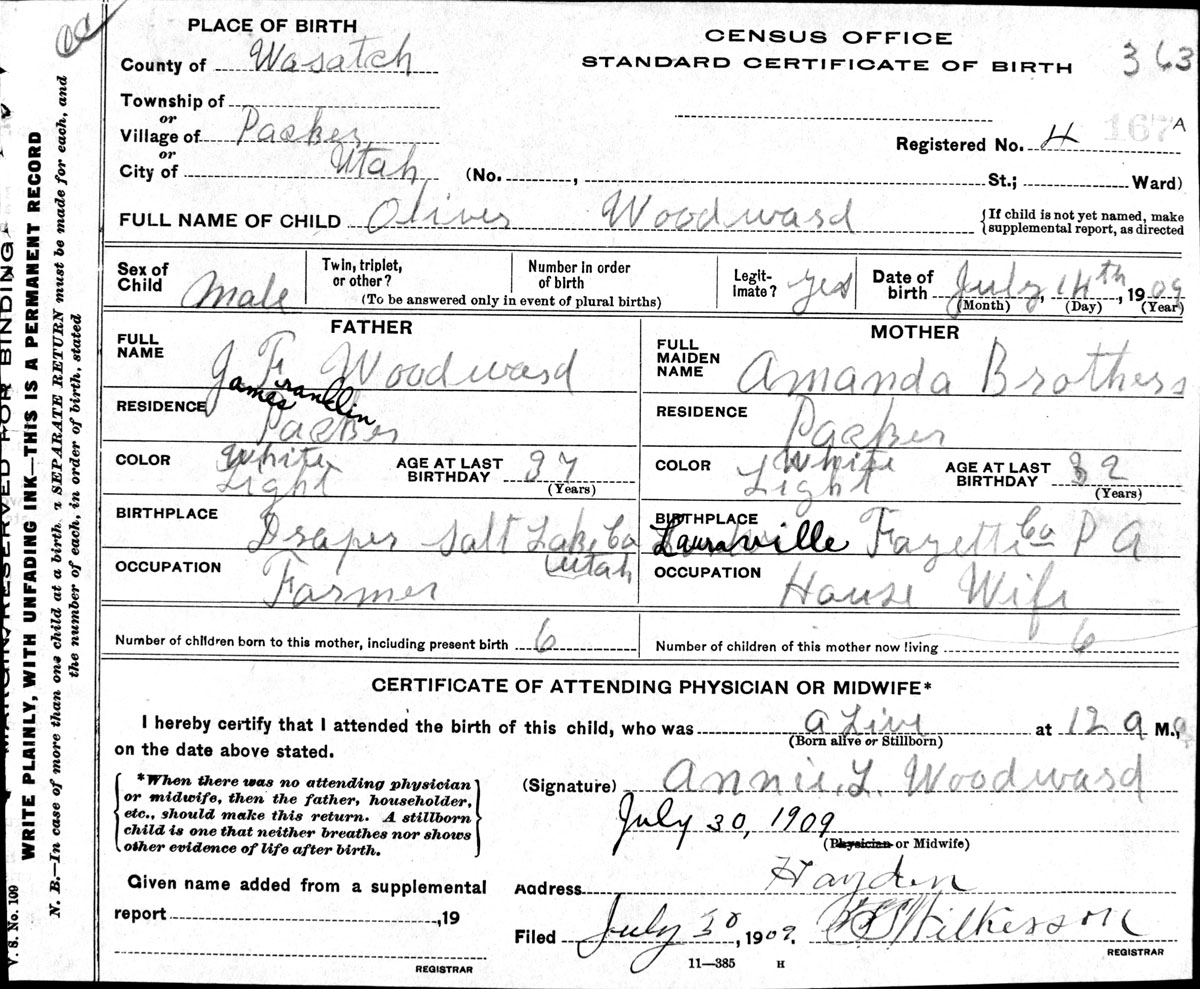 PLACE OF BIRTH
CENSUS OFFICE
STANDARD CERTIFICATE OF BIRTH
363
County of Wasatch
Township of
or
Village of Packer
or
City of Utah (No. , St.; Ward)
Registered No. 4 167 A
FULL NAME OF CHILD Oliver Woodward
{If child is not yet named, make
supplemental report, as directed
Sex of Child Male
Twin, triplet, or other?
Number in order of birth
(To be answered only in event of plural births)
Legitimate? yes
Date of birth July, 14th, 1909
(Month) (Day) (Year)
FATHER
FULL NAME J F Woodward
James Franklin
RESIDENCE Packer
COLOR White
Light
AGE AT LAST BIRTHDAY 37
(Years)
BIRTHPLACE Draper Salt Lake Co
Utah
OCCUPATION Farmer
MOTHER
FULL MAIDEN NAME Amanda Brothers
RESIDENCE Packer
COLOR White
Light
AGE AT LAST BIRTHDAY 32
(Years)
BIRTHPLACE
Lauraville Fayette Co P A
OCCUPATION House Wife
Number of children born to this mother, including present birth 6
Number of children of this mother now living 6
CERTIFICATE OF ATTENDING PHYSICIAN OR MIDWIFE*
I hereby certify that I attended the birth of this child, who was a Live at 12 a M.,
(Born alive or Stillborn)
on the date above stated.
{*When there was no attending physician
or midwife, then the father, householder,
etc., should make this return. A stillborn
child is one that neither breathes nor shows
other evidence of life after birth.}
(Signature) Annie. L. Woodward
July 30, 1909
(Physician or Midwife)
Given name added from a supplemental
report ,19
REGISTRAR
Address Hayden
Filed July 30, 1909. Wilkerson
REGISTRAR
11—385 H
V. S. No. 109
MARGIN RESERVED FOR BINDING
WRITE PLAINLY, WITH UNFADING INK—THIS IS A PERMANENT RECORD
N. B.—In case of more than one child at a birth, a SEPARATE RETURN must be made for each, and
the number of each, in order of birth, stated